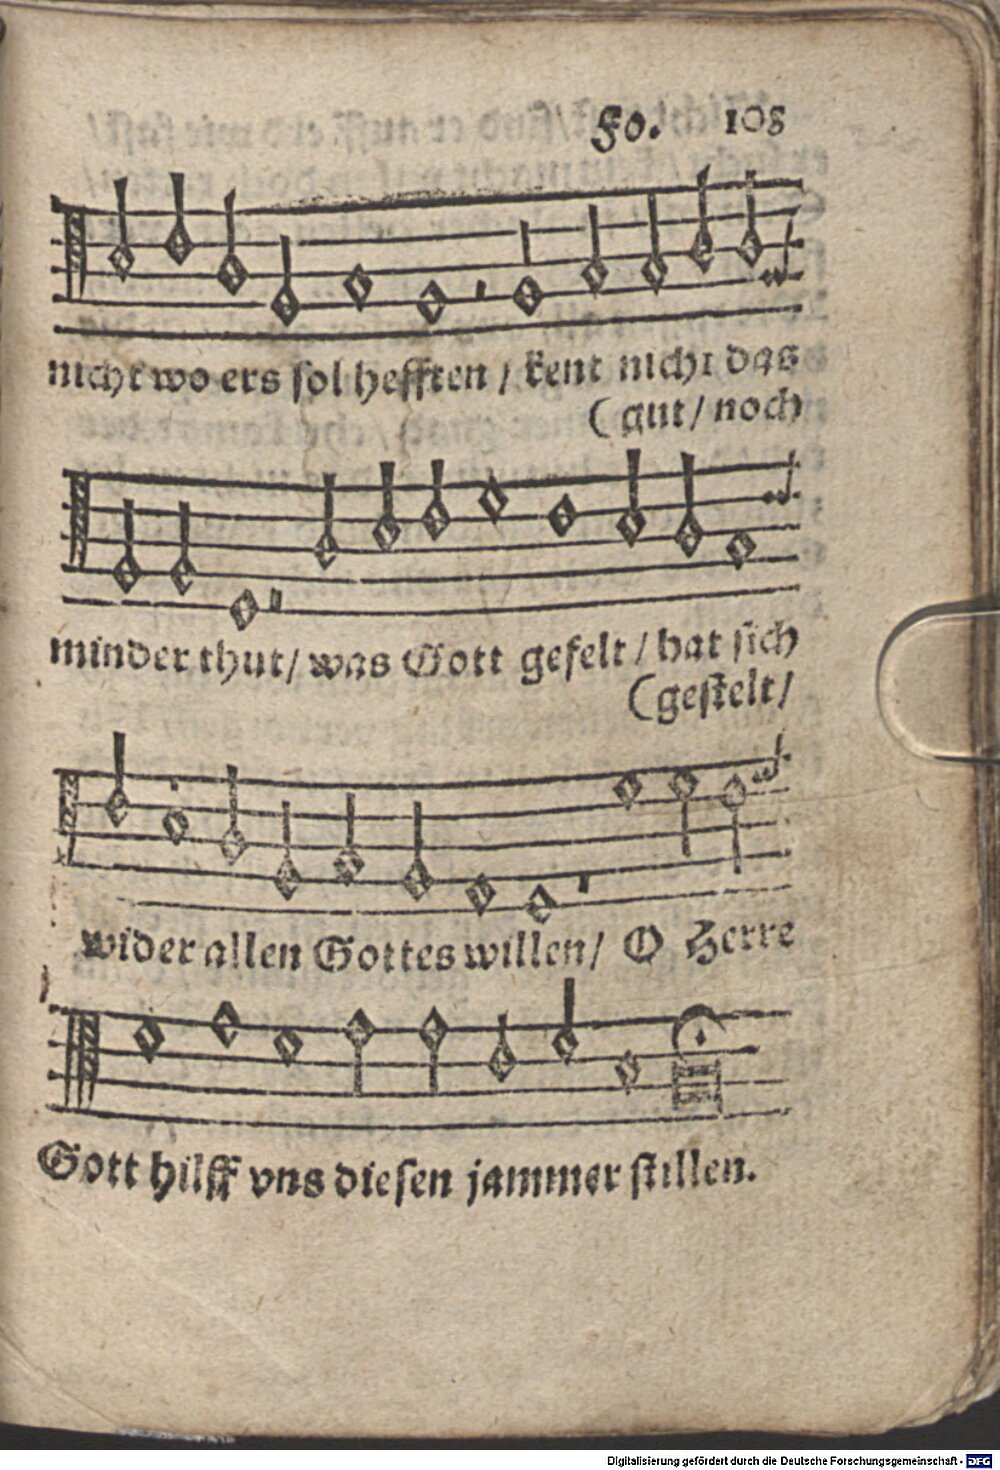 Fo. 108
nicht wo ers sol hefften / kent nicht das
(gut / noch
minder thut / was Gott gefelt / hat sich
(gestelt /
wider allen Gottes willen / O Herre
Gott hilff vns diesen jammer stillen.
Digitalisierung gefördert durch die Deutsche Forschungsgemeinschaft - DFG